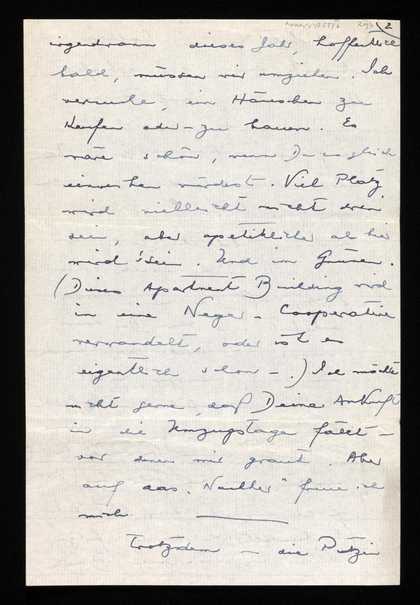 2
irgendwann dieses Jahr, hoffentlich
bald, müssen wir umziehen. Ich
versuche, ein Häuschen zu
kaufen oder – zu bauen. Es
wäre schön, wenn Du es gleich
einweihen würdest. Viel Platz
wird vielleicht nicht drin
sein, aber apetitlicher als hier
wird's sein. Und im Grünen.
(Dieses Apartment Building wird
in eine Neger-Cooperative
verwandelt, oder ist es
eigentlich schon –.) Ich möchte
nicht gerne, daß Deine Ankunft
in die Umzugstage fällt –
vor denen mir graut. Aber
auf das "Nachher" freue ich
mich.
Trotzdem – die